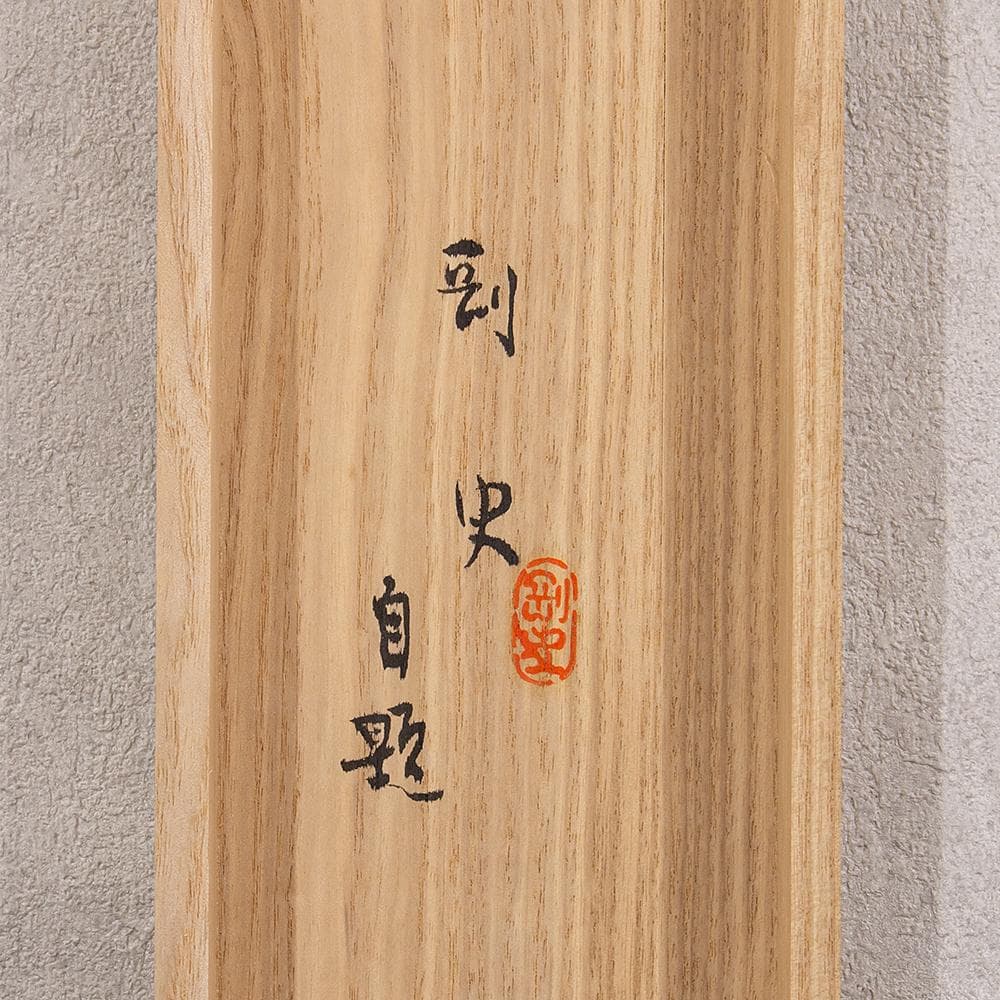 剛史
自題
剛史